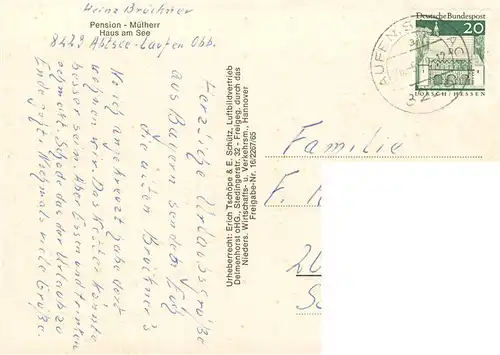 Heinz Brückner
Pension - Mülherr
Haus am See
8229 Abtsee-Laufen Obb.
Herzliche Urlaubsgrüße
aus Bayern senden Euch
die alten Brückner's
Noch angekreuzt habe dort
wohnen wir. Das Wetter könnte
besser sein. Aber Essen und trinken
schmeckt. Schade das der Urlaub zu
Ende geht. Nochmals viele Grüße.
Urheberrecht: Erich Tschöpe & E. Schütz, Luftbildvertrieb
Delmenhorst oHG., Stedingerstr. 32 - Freigeg. durch das
Nieders. Wirtschafts- u. Verkehrsm., Hannover
Freigabe-Nr. 16/2267/65
Deutsche Bundespost
20
LORSCH / HESSEN
LAUFEN
Familie
F.